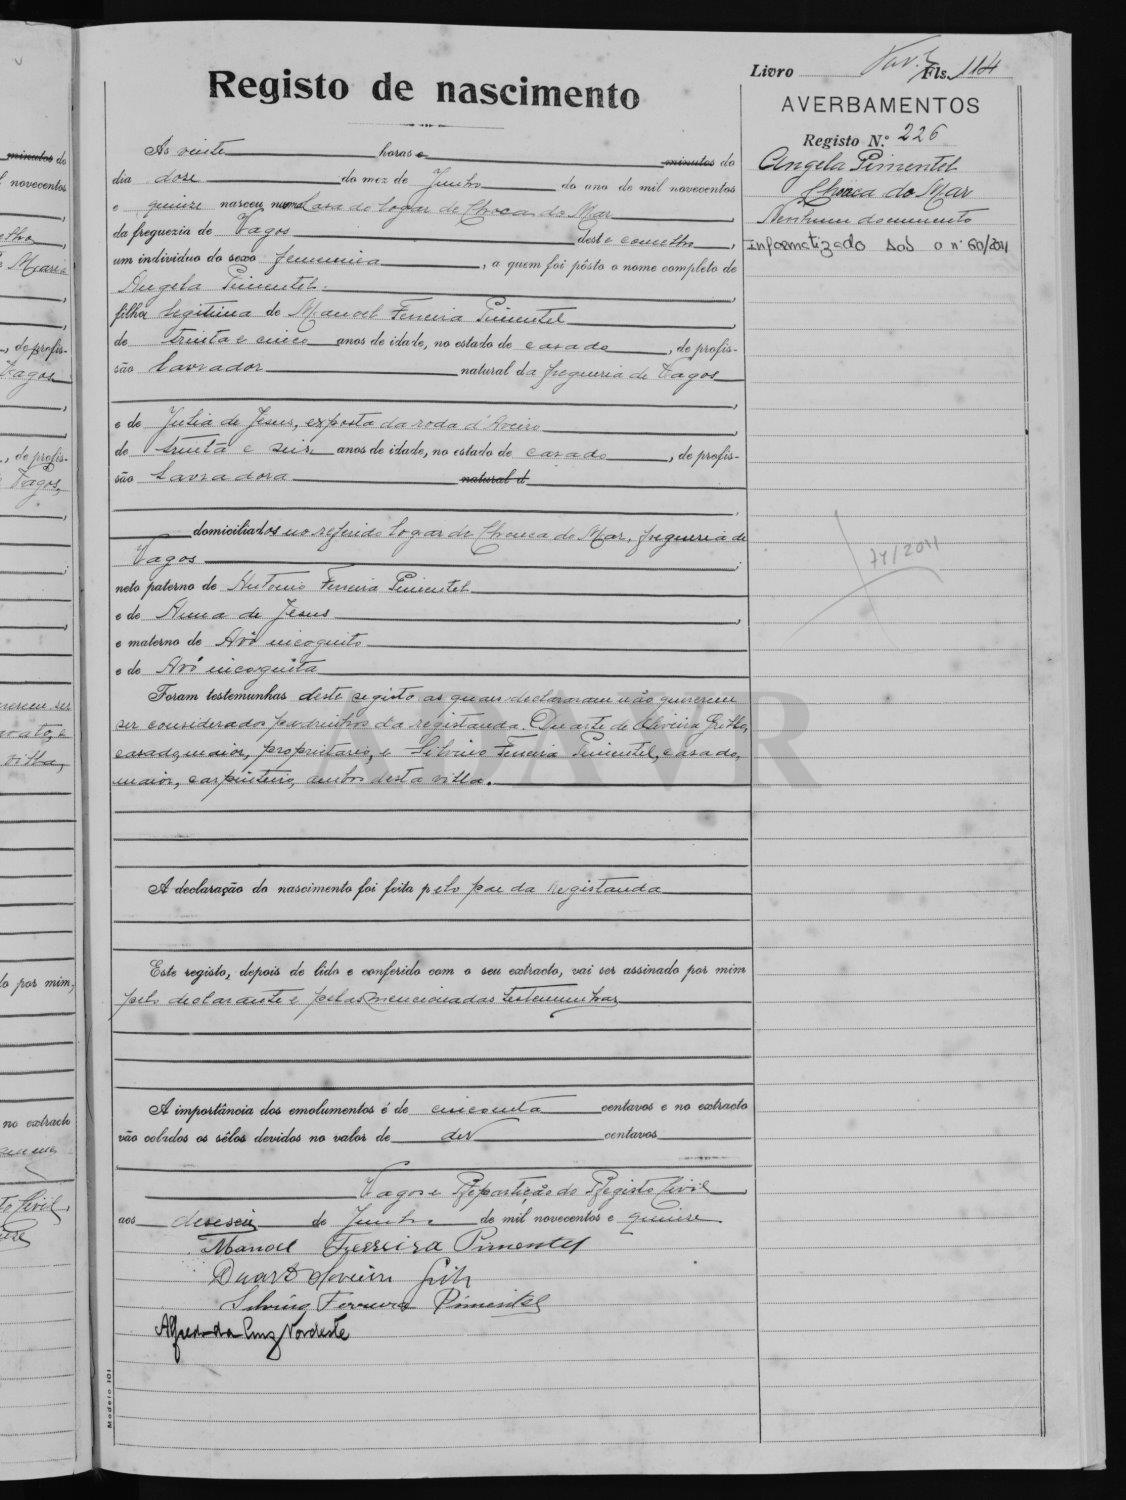 Livro Fls. 114
Registo de nascimento
AVERBAMENTOS
Registo N.º 226
Angela Pimentel
Choca do Mar
Nenhum documento
Informatizado sob o nº 60/2011
74/2011
Ás vinte horas e minutos do
dia dose do mez de Junho do ano de mil novecentos
e quinze nasceu numa Casa do logar de Choca do Mar,
da freguezia de Vagos deste concelho,
um individuo do sexo feminina, a quem foi pôsto o nome completo de
Angela Pimentel,
filha legitima de Manoel Ferreira Pimentel,
de trinta e cinco anos de idade, no estado de casado, de profis-
são Lavrador natural da freguesia de Vagos
,
e de Julia de Jesus, exposta da roda d'Aveiro,
de trinta e seis anos de idade, no estado de casado, de profis-
são Lavradora natural d
,
domiciliados no referido logar de Choca do Mar, freguesia de
Vagos;
neto paterno de Antonio Ferreira Pimentel
e de Anna de Jesus,
e materno de Avô incognito
e de Avó incognita
Foram testemunhas deste registo as quais declararam não quererem
ser considerados padrinhos da registanda. Duarte de Oliveira Grilho,
casado, maior, proprietario, e Silvino Ferreira Pimentel, casado,
maior, carpinteiro, ambos desta villa.
A declaração do nascimento foi feita pelo pae da registanda
Este registo, depois de lido e conferido com o seu extracto, vai ser assinado por mim
pelo declarante e pelas mencionadas testemunhas
A importância dos emolumentos é de cincoenta centavos e no extracto
vão colados os sêlos devidos no valor de dez centavos
Vagos e Repartição do Registo Civil,
aos deseseis de Junho de mil novecentos e quinze
Manoel Ferreira Pimentel
Duarte Oliveira
Silvino Ferreira Pimentel
Alfredo da Cruz Nordeste
Modelo 101
ADAVR
minutos do
novecentos
Maria
, de profis-
Vagos
, de profis-
Vagos,
villa,
do por mim,
no extracto
Civil,